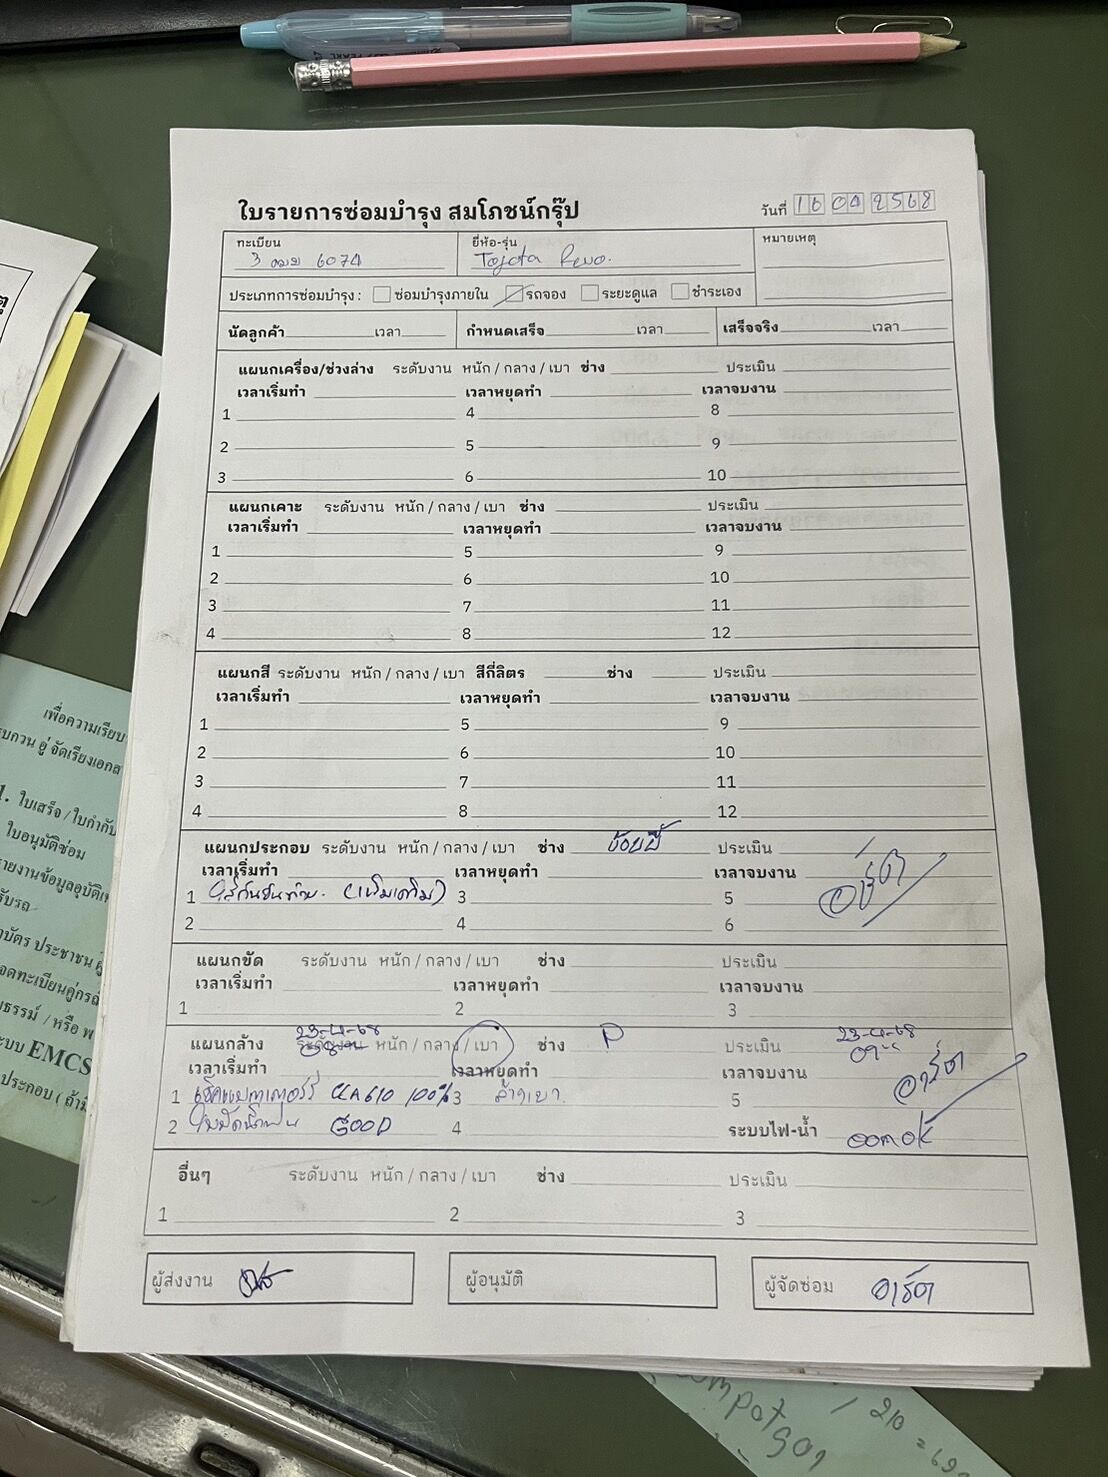 ใบรายการซ่อมบำรุง สมโภชน์กรุ๊ป
วันที่ 16 04 2568
ทะเบียน ยี่ห้อ-รุ่น หมายเหตุ
3 6074 Toyota Revo.
ประเภทการซ่อมบำรุง : ซ่อมบำรุงภายใน รถจอง ระยะดูแล ชำระเอง
นัดลูกค้า เวลา กำหนดเสร็จ เวลา เสร็จจริง เวลา
แผนกเครื่อง/ช่วงล่าง ระดับงาน หนัก / กลาง / เบา ช่าง ประเมิน
เวลาเริ่มทำ เวลาหยุดทำ เวลาจบงาน
1 4 8
2 5 9
3 6 10
แผนกเคาะ ระดับงาน หนัก / กลาง / เบา ช่าง ประเมิน
เวลาเริ่มทำ เวลาหยุดทำ เวลาจบงาน
1 5 9
2 6 10
3 7 11
4 8 12
แผนกสี ระดับงาน หนัก / กลาง / เบา สีกี่ลิตร ช่าง ประเมิน
เวลาเริ่มทำ เวลาหยุดทำ เวลาจบงาน
1 5 9
2 6 10
3 7 11
4 8 12
แผนกประกอบ ระดับงาน หนัก / กลาง / เบา ช่าง ประเมิน
เวลาเริ่มทำ เวลาหยุดทำ เวลาจบงาน
1 3 5
2 4 6
แผนกขัด ระดับงาน หนัก / กลาง / เบา ช่าง ประเมิน
เวลาเริ่มทำ เวลาหยุดทำ เวลาจบงาน
1 2 3
23-4-68 23-4-68
แผนกล้าง ระดับงาน หนัก / กลาง / เบา ช่าง P ประเมิน
เวลาเริ่มทำ เวลาหยุดทำ เวลาจบงาน
1 เช็คแบตเตอร์รี่ CCA610 100% 3 ล้างเบา. 5
2 GOOD 4 ระบบไฟ-น้ำ OK
อื่นๆ ระดับงาน หนัก / กลาง / เบา ช่าง ประเมิน
1 2 3
ผู้ส่งงาน ผู้อนุมัติ ผู้จัดซ่อม อาร์ต
เพื่อความเรียบ
1. ใบเสร็จ / ใบกำกับ
ใบอนุมัติซ่อม
ายงานข้อมูลอุบัติเห
รับรถ
บัตร ประชาชน
จดทะเบียนคู่กรณี
ธรรม์ / หรือ พ
ะบบ EMCS
ประกอบ ( ถ้ามี